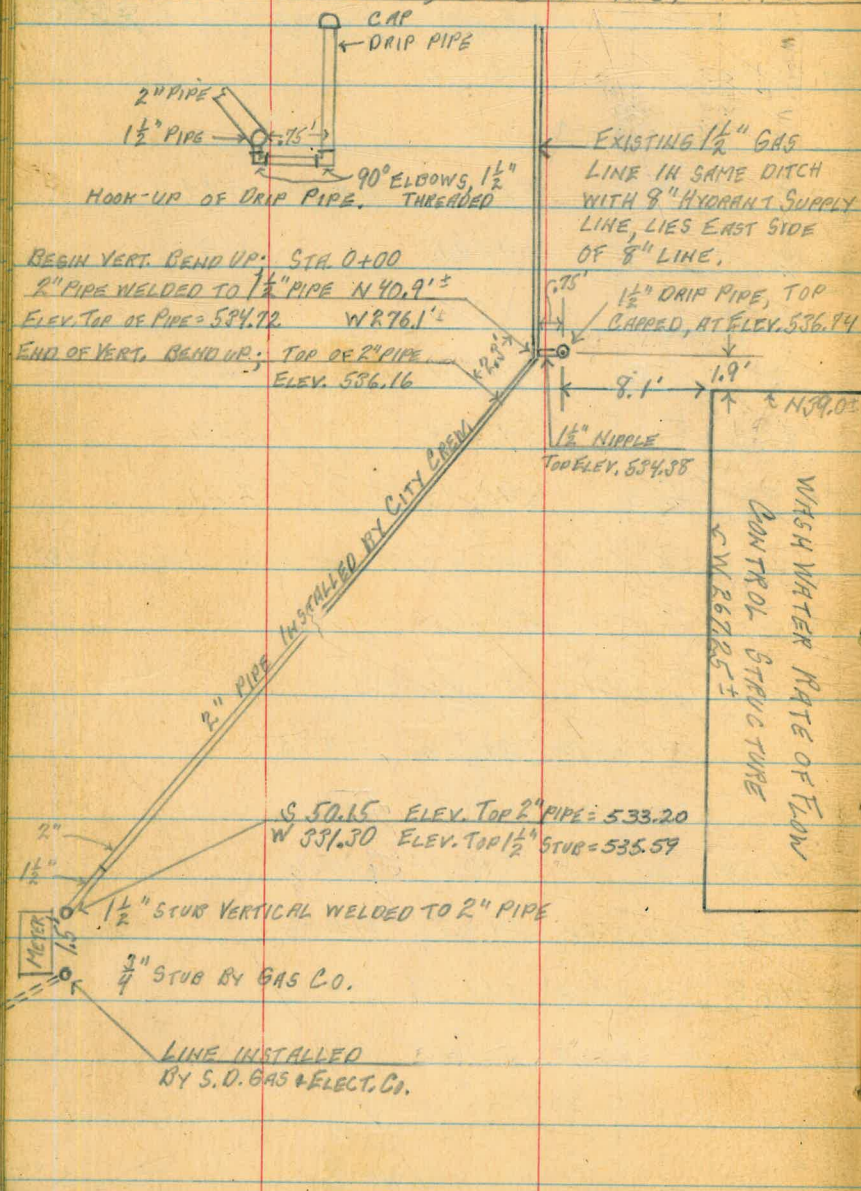 CAP
DRIP PIPE
2" PIPE
1½" PIPE
.75'
90° ELBOWS, 1½"
THREADED
HOOK-UP OF DRIP PIPE.
EXISTING 1½" GAS
LINE IN SAME DITCH
WITH 8" HYDRANT SUPPLY
LINE, LIES EAST SIDE
OF 8" LINE.
BEGIN VERT. BEND UP: STA. 0+00
2" PIPE WELDED TO 1½" PIPE N 40.9'±
ELEV. TOP OF PIPE = 534.72 W 276.1'±
END OF VERT. BEND UP; TOP OF 2" PIPE
ELEV. 536.16
2.3'
.75'
1½" DRIP PIPE, TOP
CAPPED, AT ELEV. 536.74
1.9'
8.1'
N39.0±
1½" NIPPLE
TOP ELEV. 534.38
WASH WATER RATE OF FLOW
CONTROL STRUCTURE
W 267.25±
2" PIPE INSTALLED BY CITY CREW
S 50.15 ELEV. TOP 2" PIPE = 533.20
W 331.30 ELEV. TOP 1½" STUB = 535.59
2"
1½"
1½" STUB VERTICAL WELDED TO 2" PIPE
METER
1.5'
¾" STUB BY GAS CO.
LINE INSTALLED
BY S.D. GAS & ELECT. CO.